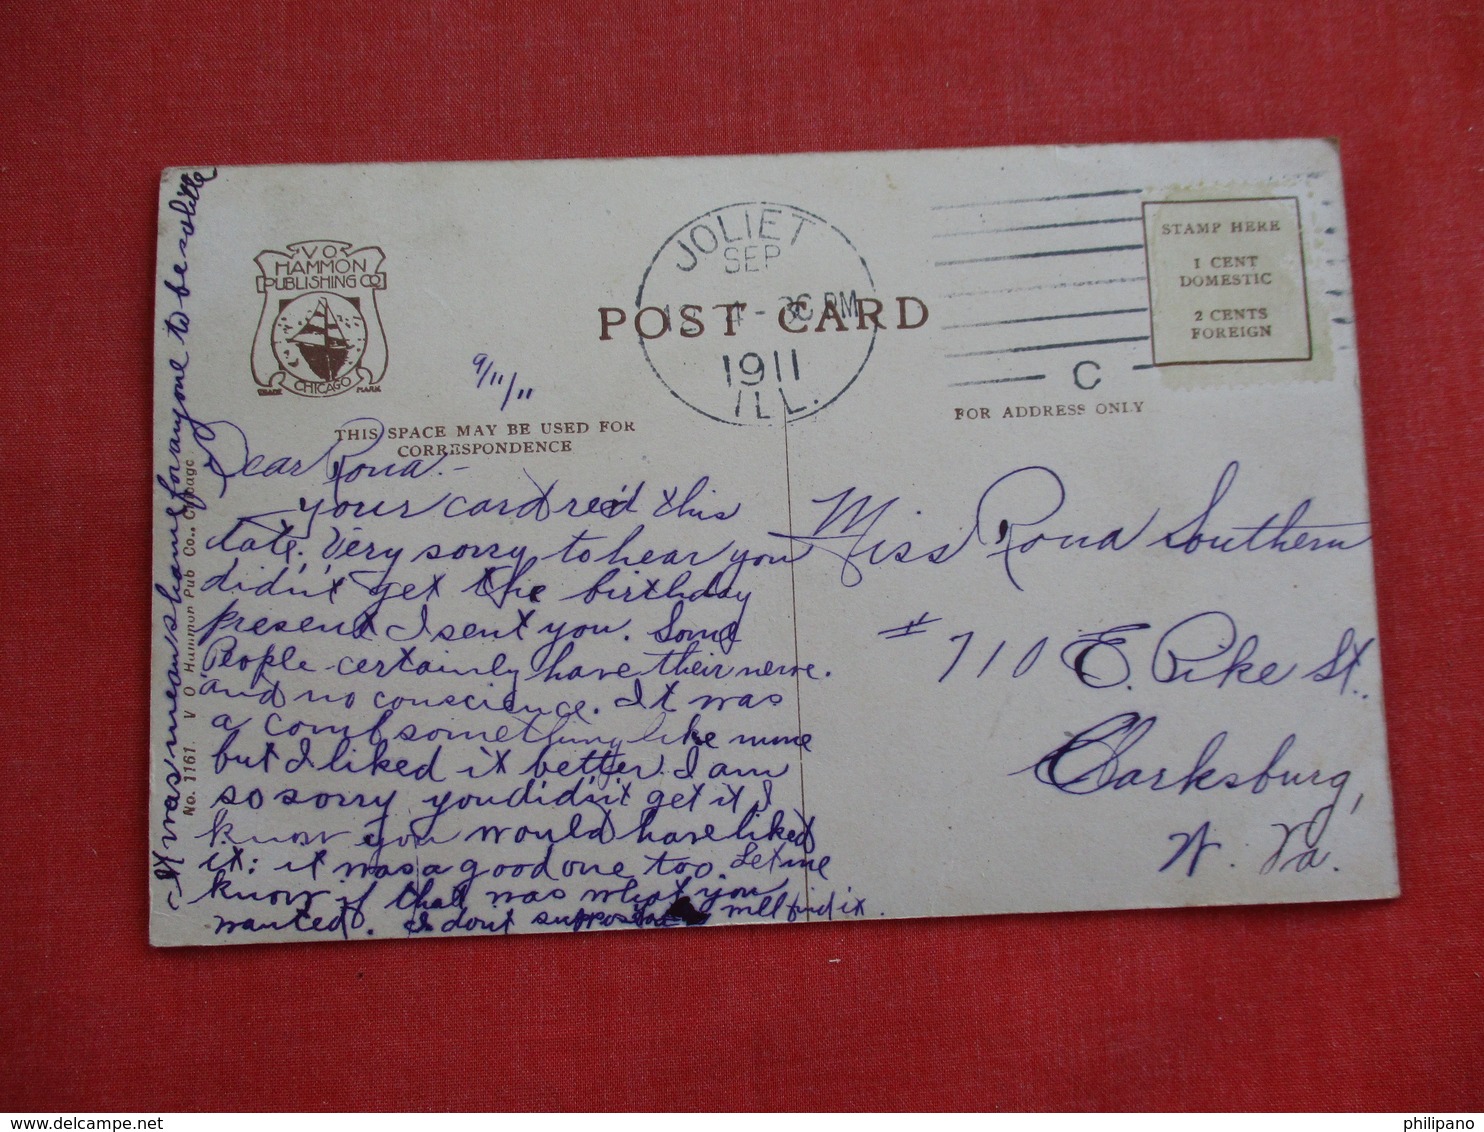 V O
HAMMON
PUBLISHING CO
CHICAGO
TRADE MARK
JOLIET
SEP
4 - PM
1911
ILL.
C
POST CARD
STAMP HERE
1 CENT
DOMESTIC
2 CENTS
FOREIGN
9/11/11
THIS SPACE MAY BE USED FOR
CORRESPONDENCE
FOR ADDRESS ONLY
Dear Rona.-
your card rec'd this
date. Very sorry to hear you
didn't get the birthday
present I sent you. Some
People certainly have their nerve.
and no conscience. It was
a comb something like mine
but I liked it better. I am
so sorry you didn't get it I
know you would have liked
it: it was a good one too. Let me
know if that was what you
wanted. I dont suppose will find it.
It was mean shame for anyone to be so little
No. 1161. V O Hammon Pub Co., Chicago
Miss Rona Southern
# 710 E. Pike St.
Clarksburg,
W. Va.
philipano